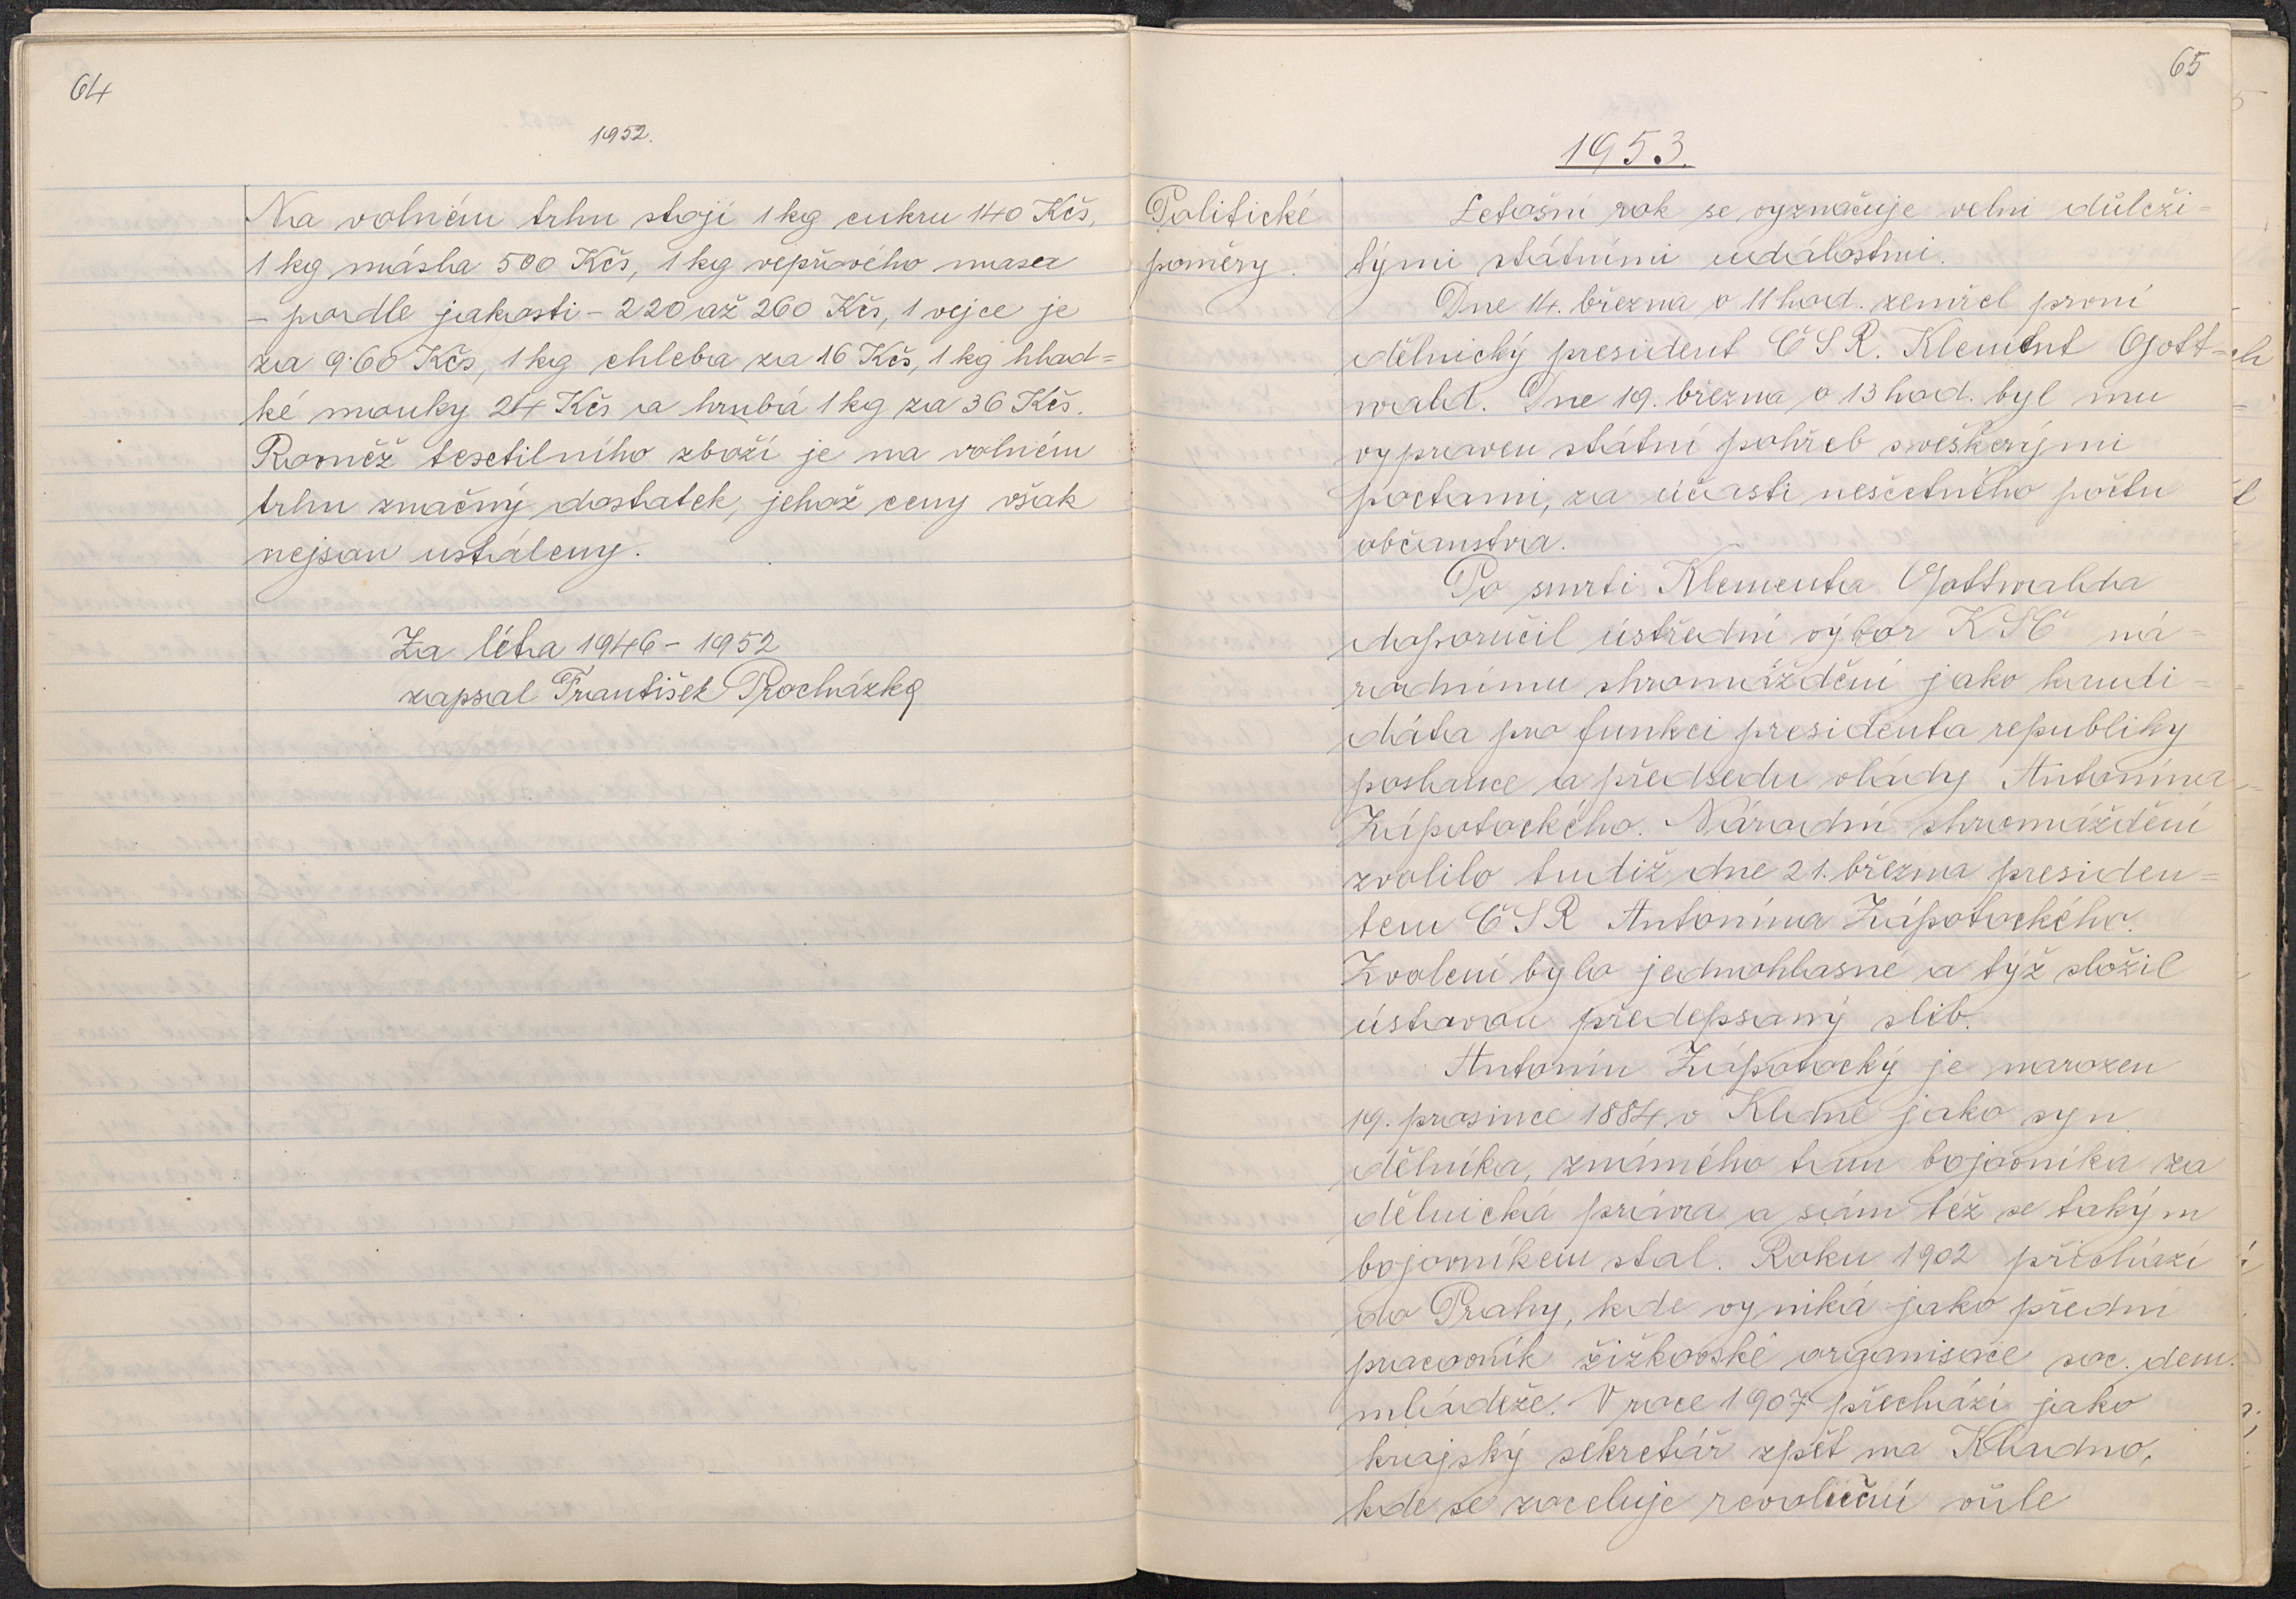 64
1952.
Na volném trhu stojí 1 kg cukru 140 Kčs,
1 kg másla 500 Kčs, 1 kg vepřového masa
– podle jakosti – 220 až 260 Kčs, 1 vejce je
za 9·60 Kčs, 1 kg chleba za 16 Kčs, 1 kg hlad=
ké mouky 24 Kčs a hrubá 1 kg za 36 Kčs.
Rovněž textilního zboží je na volném
trhu značný dostatek, jehož ceny však
nejsou ustáleny.
Za léta 1946 – 1952
zapsal František Procházka
65
1953.
Politické
poměry.
Letošní rok se vyznačuje velmi důleži=
tými státními událostmi.
Dne 14. března o 11 hod. zemřel první
dělnický president ČSR. Klement Gott=
wald. Dne 19. března o 13 hod. byl mu
vypraven státní pohřeb s veškerými
poctami, za účasti nesčetného počtu
občanstva.
Po smrti Klementa Gottwalda
doporučil ústřední výbor KSČ ná=
rodnímu shromáždění jako kandi=
dáta pro funkci presidenta republiky
poslance a předsedu vlády Antonína
Zápotockého. Národní shromáždění
zvolilo tudíž dne 21. března presiden=
tem ČSR Antonína Zápotockého.
Zvolení bylo jednohlasné a týž složil
ústavou předepsaný slib.
Antonín Zápotocký je narozen
19. prosince 1884 v Kladně jako syn
dělníka, známého tam bojovníka za
dělnická práva a sám též se takým
bojovníkem stal. Roku 1902 přichází
do Prahy, kde vyniká jako přední
pracovník žižkovské organisace soc. dem.
mládeže. V roce 1907 přechází jako
krajský sekretář zpět na Kladno,
kde se zoceluje revoluční vůle